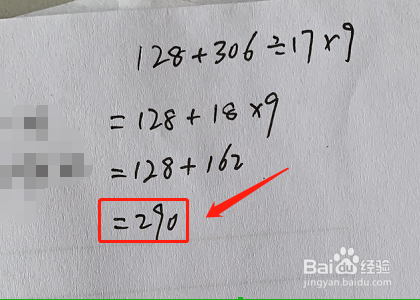 128+306÷17×9
=128+18×9
=128+162
=290
Baidu经验
jingyan.baidu.com